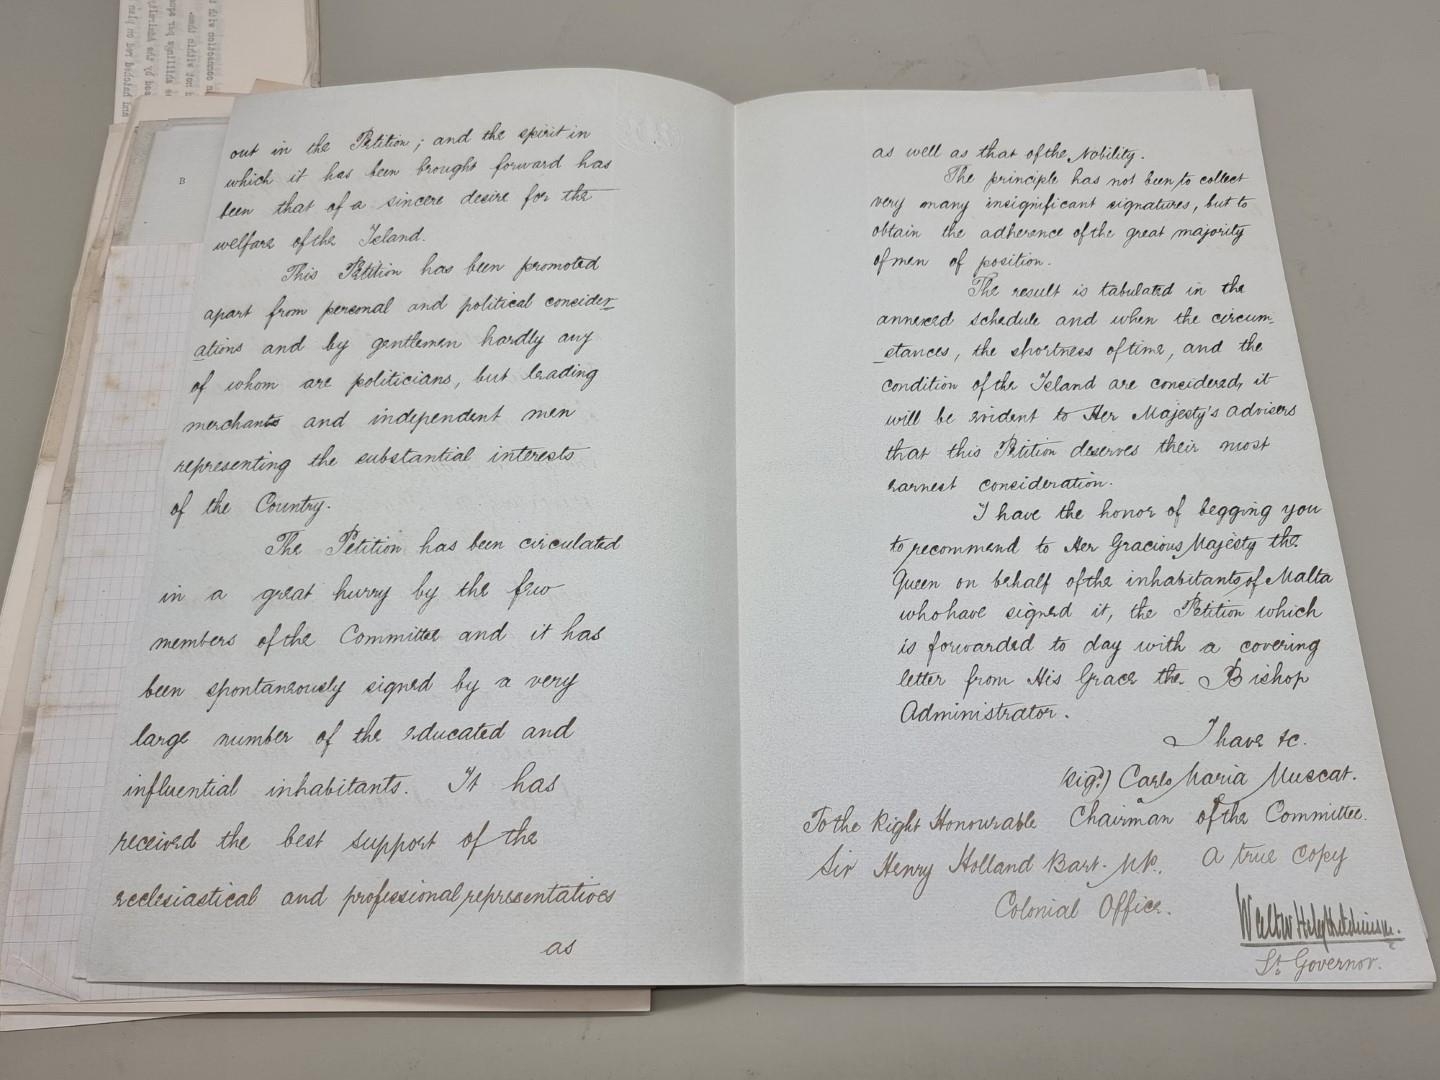 out in the Petition; and the spirit in
which it has been brought forward has
been that of a sincere desire for the
welfare of the Island.
This Petition has been promoted
apart from personal and political consider-
ations and by gentlemen hardly any
of whom are politicians, but leading
merchants and independent men
representing the substantial interests
of the Country.
The Petition has been circulated
in a great hurry by the few
members of the Committee and it has
been spontaneously signed by a very
large number of the educated and
influential inhabitants. It has
received the best support of the
ecclesiastical and professional representatives
as
as well as that of the Nobility.
The principle has not been to collect
very many insignificant signatures, but to
obtain the adherence of the great majority
of men of position.
The result is tabulated in the
annexed schedule and when the circum-
stances, the shortness of time, and the
condition of the Island are considered, it
will be evident to Her Majesty's advisers
that this Petition deserves their most
earnest consideration.
I have the honor of begging you
to recommend to Her Gracious Majesty the
Queen on behalf of the inhabitants of Malta
who have signed it, the Petition which
is forwarded to day with a covering
letter from His Grace the Bishop
Administrator.
I have &c.
(sigd.) Carlo Maria Muscat.
Chairman of the Committee.
To the Right Honourable
Sir Henry Holland Bart. MP.
Colonial Office.
A true copy
Walter Hely Hutchinson.
Lt. Governor.
B